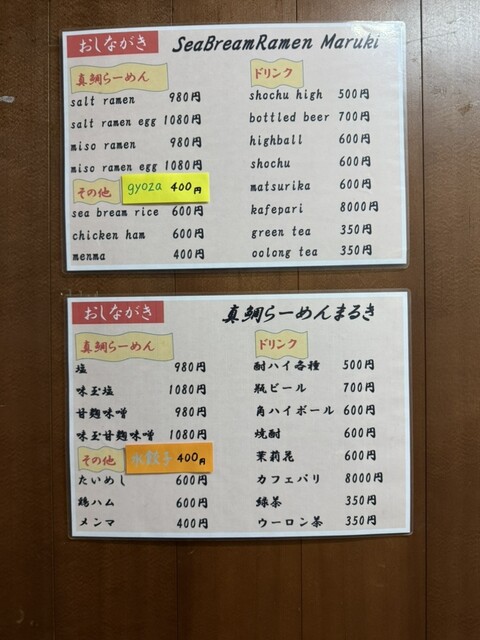 おしながき SeaBreamRamen Maruki
真鯛らーめん
salt ramen 980円
salt ramen egg 1080円
miso ramen 980円
miso ramen egg 1080円
その他 gyoza 400円
sea bream rice 600円
chicken ham 600円
menma 400円
ドリンク
shochu high 500円
bottled beer 700円
highball 600円
shochu 600円
matsurika 600円
kafepari 8000円
green tea 350円
oolong tea 350円
おしながき 真鯛らーめんまるき
真鯛らーめん
塩 980円
味玉塩 1080円
甘麹味噌 980円
味玉甘麹味噌 1080円
その他 水餃子 400円
たいめし 600円
鶏ハム 600円
メンマ 400円
ドリンク
酎ハイ各種 500円
瓶ビール 700円
角ハイボール 600円
焼酎 600円
茉莉花 600円
カフェパリ 8000円
緑茶 350円
ウーロン茶 350円